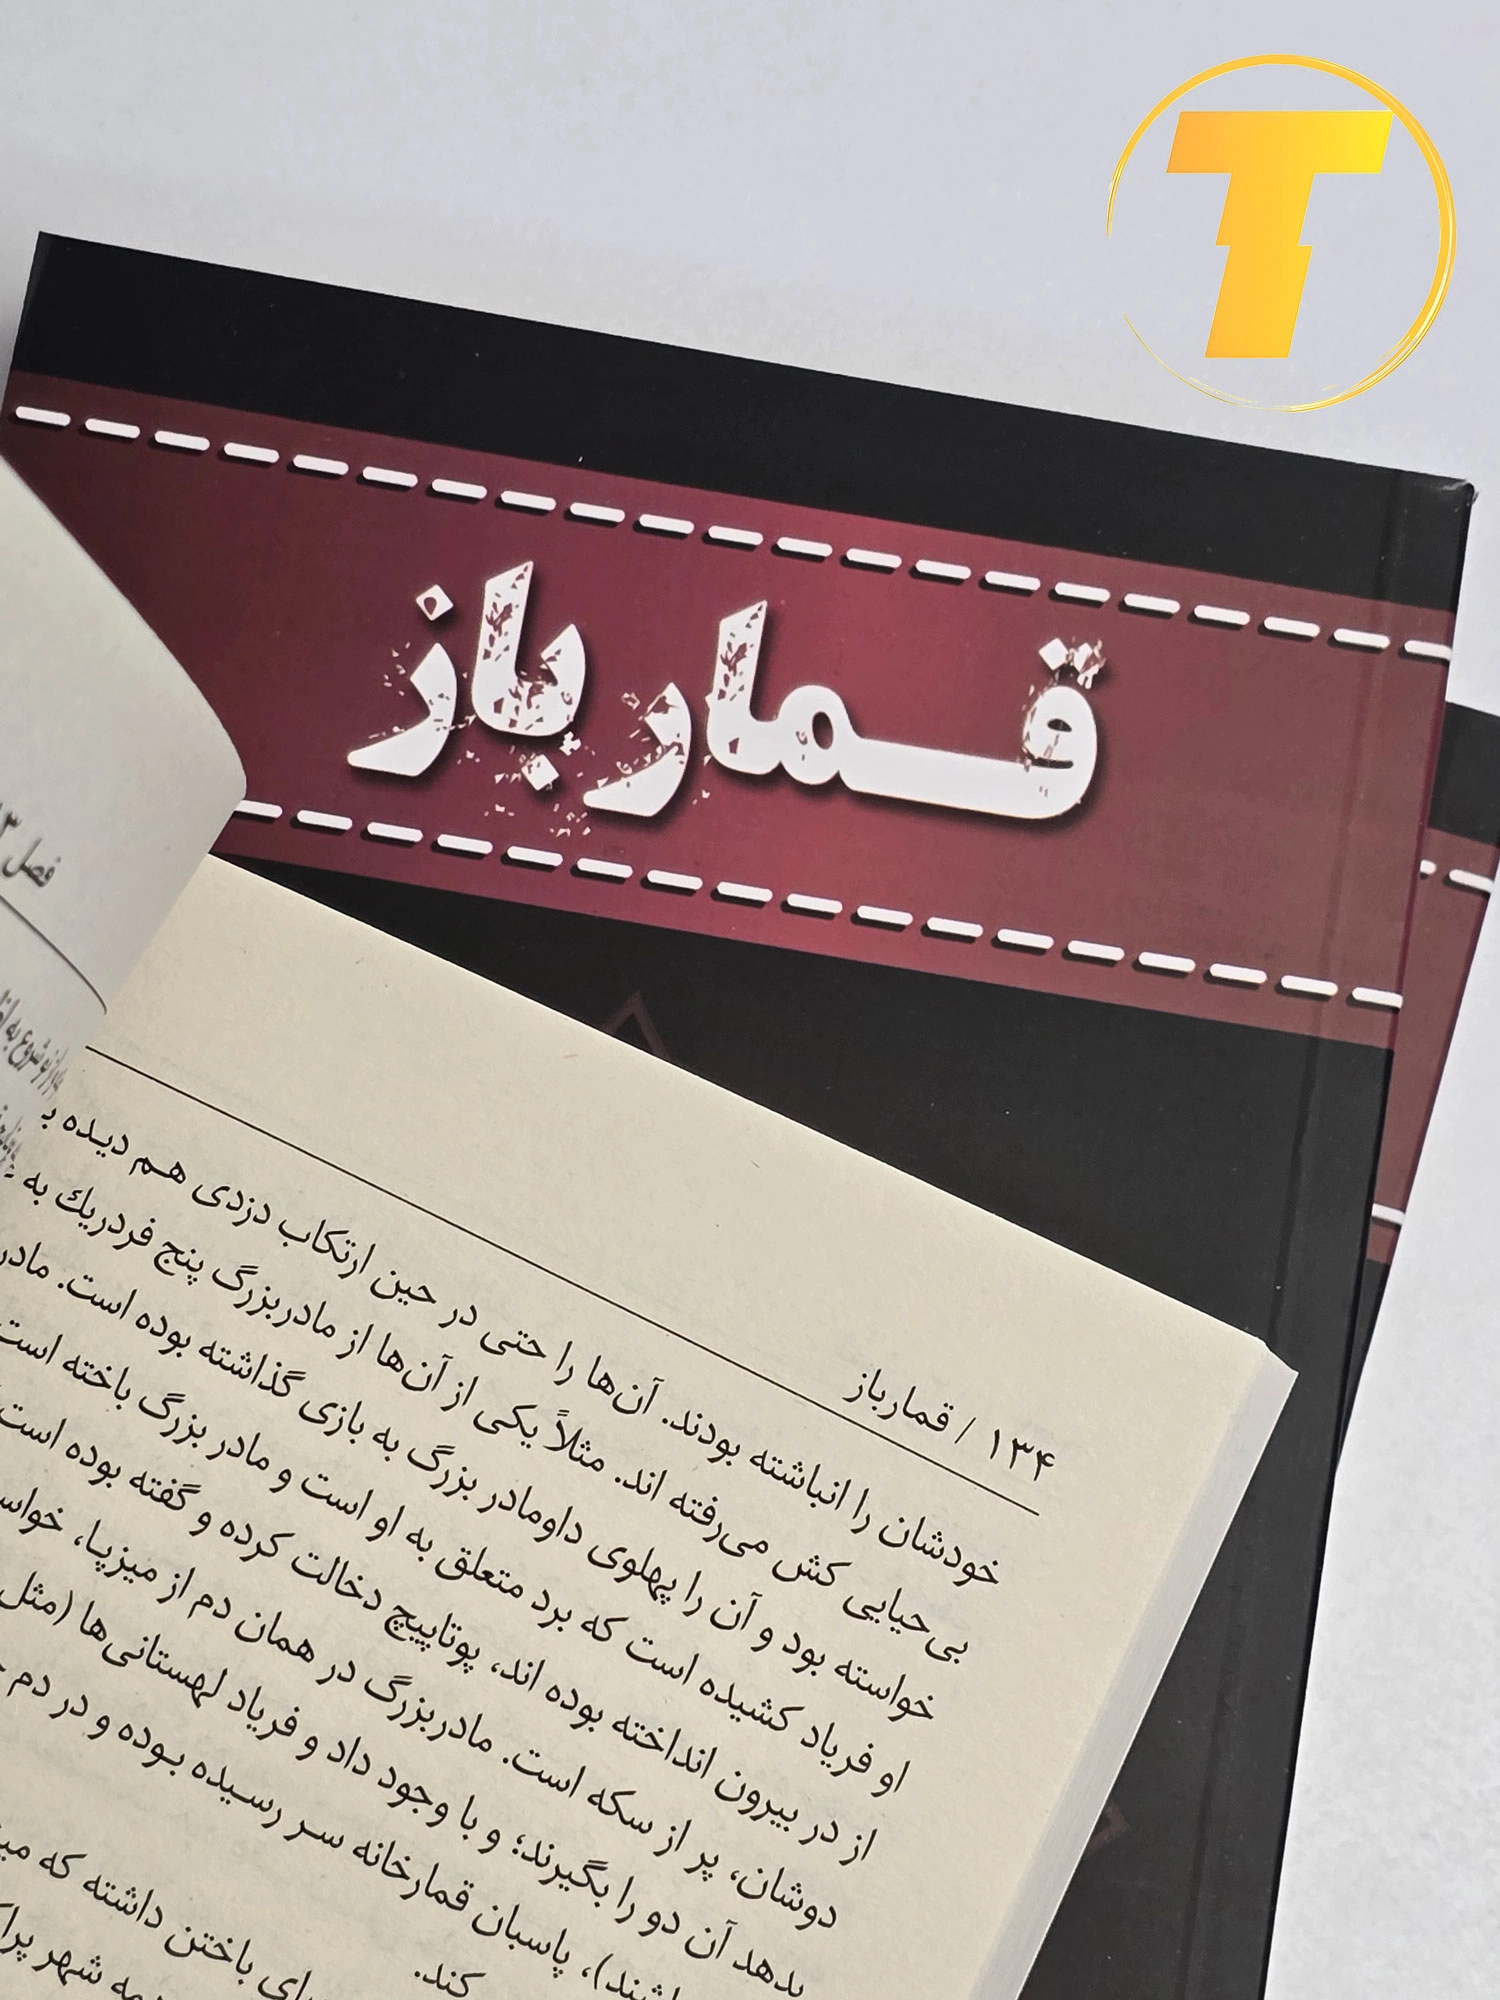 T
قمارباز
فصل ۱۳
۱۳۴ / قمارباز
خودشان را انباشته بودند. آن‌ها را حتی در حین ارتکاب دزدی هم دیده
بی‌حیایی کش می‌رفته اند. مثلاً یکی از آن‌ها از مادربزرگ پنج فردریك به
خواسته بود و آن را پهلوی داومادر بزرگ به بازی گذاشته بوده است. مادر
او فریاد کشیده است که برد متعلق به او است و مادر بزرگ باخته است
از در بیرون انداخته بوده اند، پوتاپیچ دخالت کرده و گفته بوده است
دوشان، پر از سکه است. مادربزرگ در همان دم از میزپا،
بدهد آن دو را بگیرند؛ و با وجود داد و فریاد لهستانی‌ها (مثل
پاسبان قمارخانه سر رسیده بوده و در دم
کند.
باختن داشته که
شهر